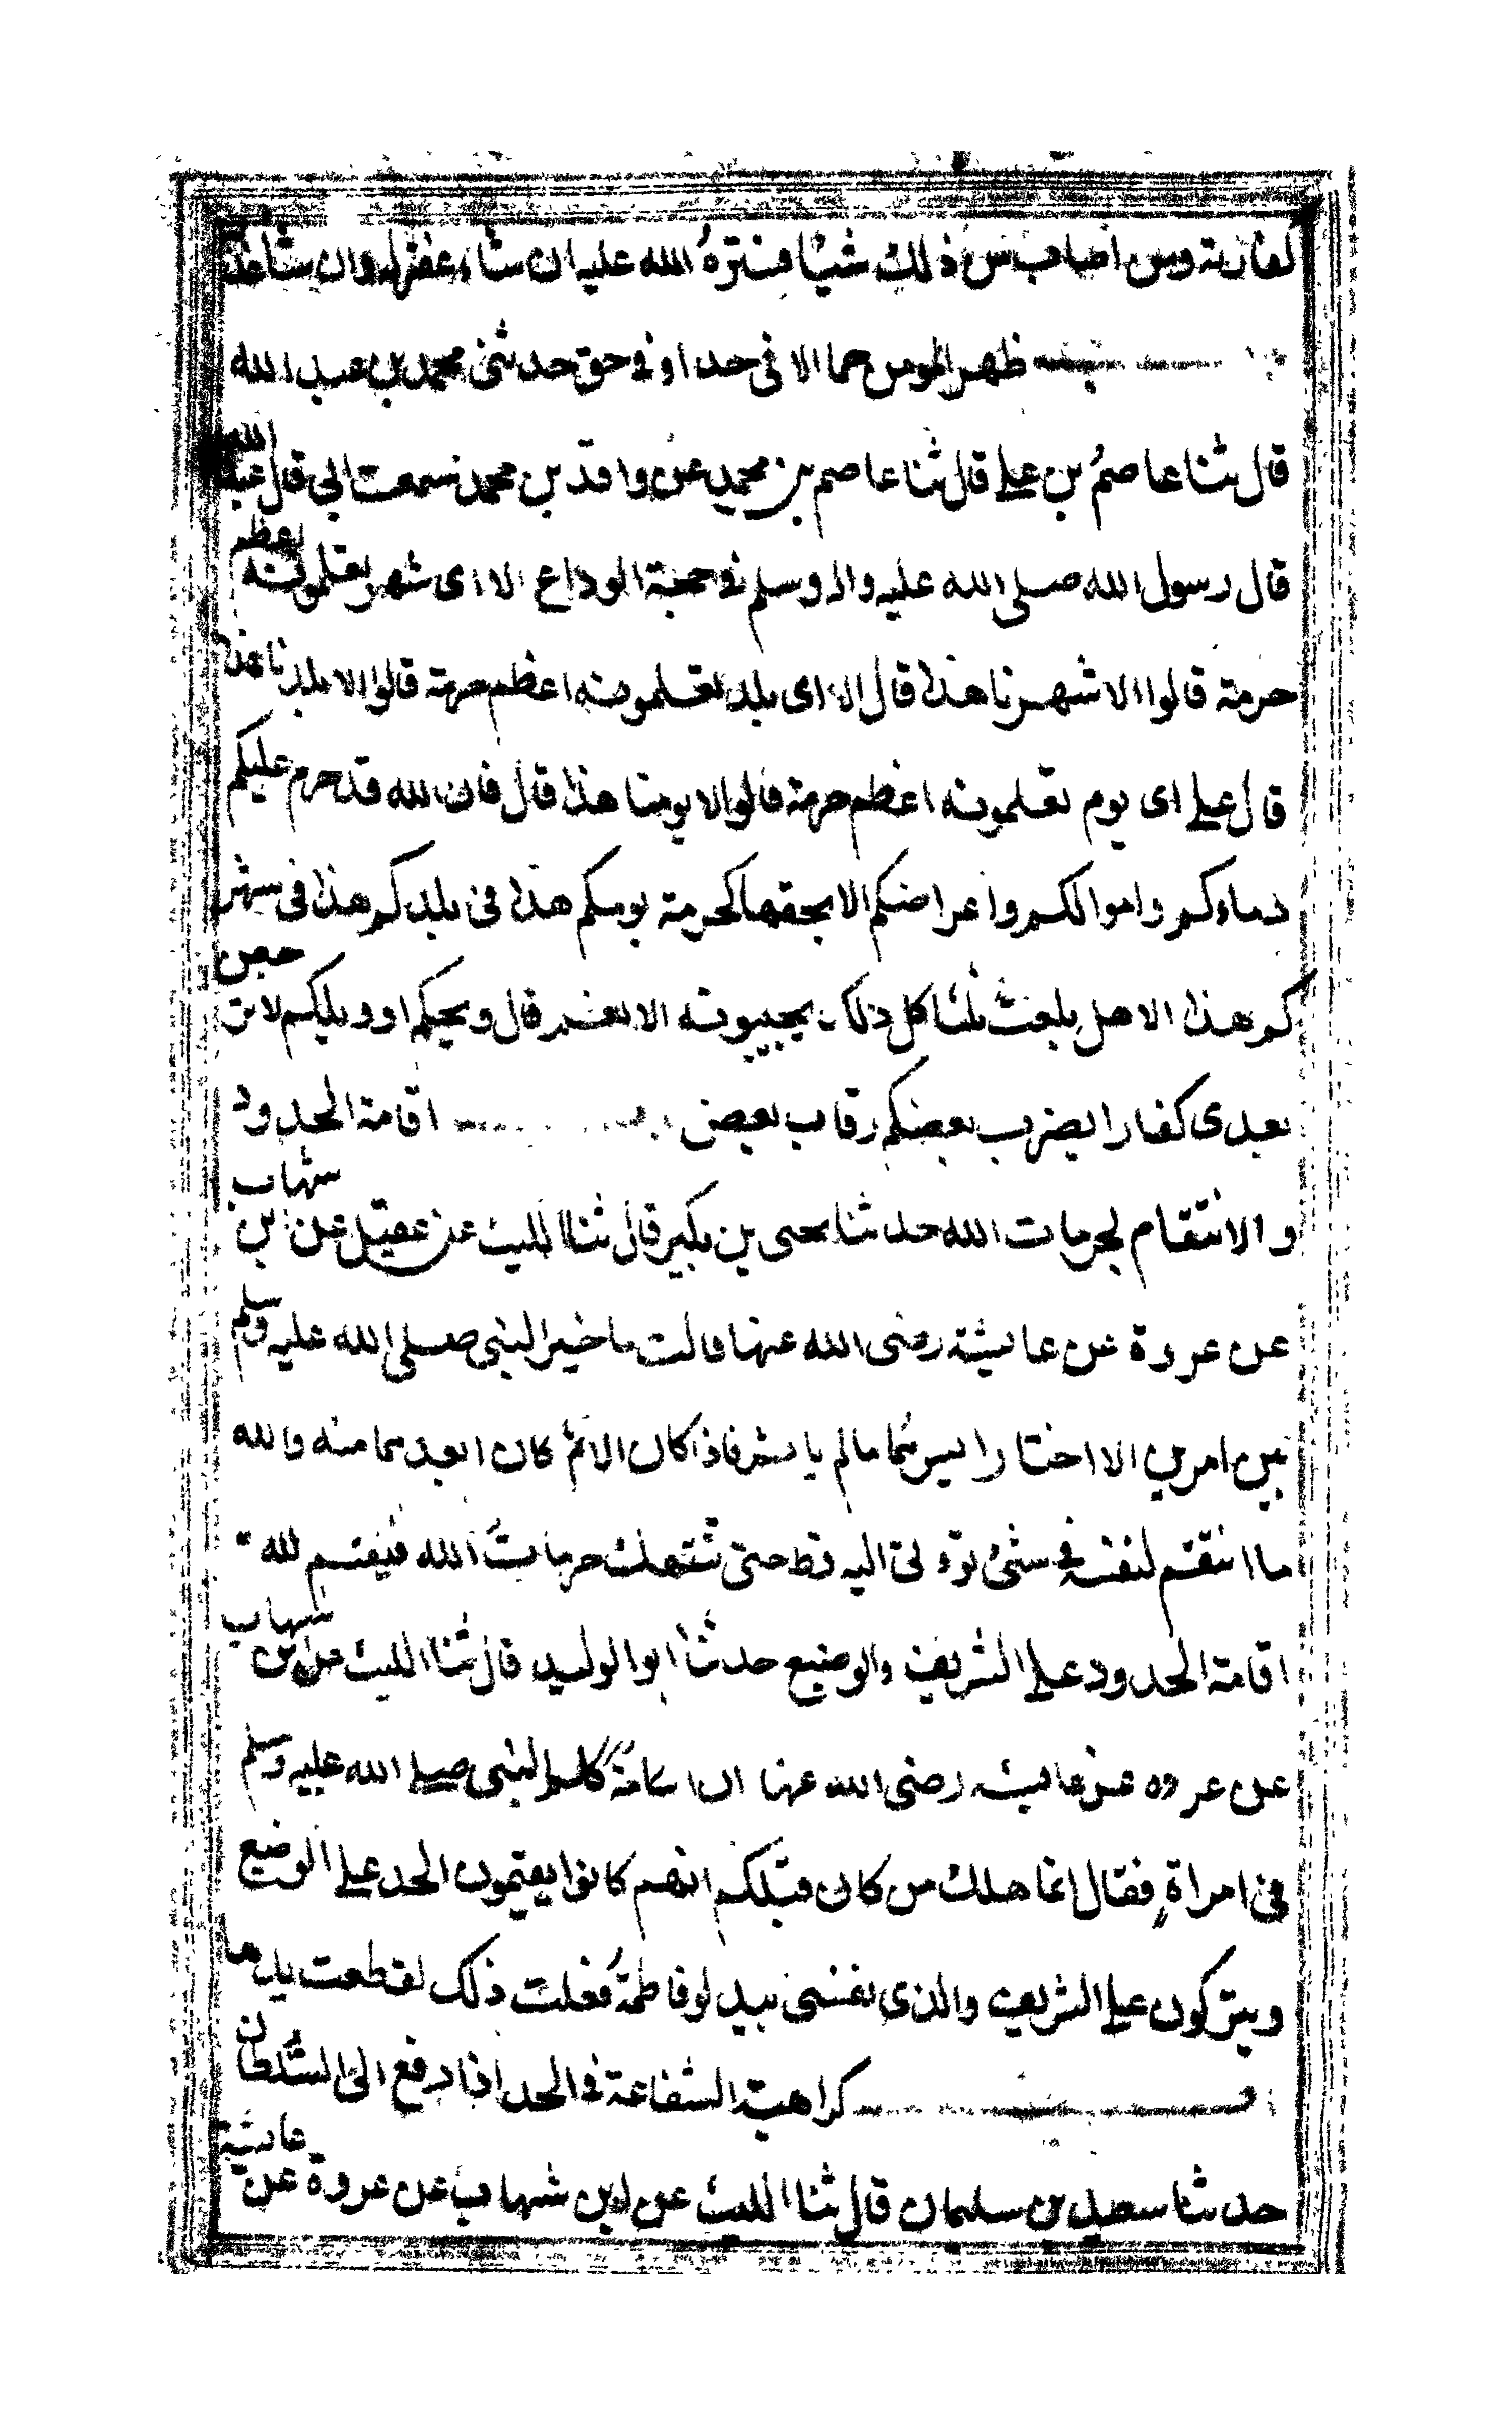 كفارته ومن اصاب من ذلك شيا فستره الله عليه ان شاء غفر له وان شا عذ
ظهر المومن حما الا فى حد او في حق حدثنى محمد بن عبد الله
قال ثنا عاصم بن على قال ثنا عاصم بن محمد عن واقد بن محمد سمعت ابي قال عبد الله
قال رسول الله صلى الله عليه واله وسلم في حجة الوداع الا اى شهر تعلمونه اعظم
حرمة قالوا الا شهرنا هذا قال الا اى بلد تعلمونه اعظم حرمة قالوا الا بلدنا هذا
قال على اى يوم تعلمونه اعظم حرمة قالوا الا يومنا هذا قال فان الله قد حرم عليكم
دماءكم واموالكم واعراضكم الا بحقها كحرمة يومكم هذا فى بلدكم هذا فى شهر
كم هذا الا هل بلغت ثلثا كل ذلك يجيبونه الا نعم قال ويحكم او ويلكم لا ترجعن
بعدى كفارا يضرب بعضكم رقاب بعض اقامة الحدود
والانتقام لحرمات الله حدثنا يحيى بن بكير قال ثنا الليث عن عقيل عن ابن شهاب
عن عروة عن عايشة رضى الله عنها قالت ما خير النبي صلى الله عليه وسلم
بين امرين الا اختار ايسرهما ما لم ياثم فاذا كان الاثم كان ابعدهما منه والله
ما انتقم لنفسه في شئ يوتى اليه قط حتى تنتهك حرمات الله فينتقم لله
اقامة الحدود على الشريف والوضيع حدثنا ابو الوليد قال ثنا الليث عن ابن شهاب
عن عروه عن عايشه رضى الله عنها ان اسامة كلم النبى صلى الله عليه وسلم
فى امراة فقال انما هلك من كان قبلكم انهم كانوا يقيمون الحد على الوضيع
ويتركون على الشريف والذى نفسى بيده لو فاطمة فعلت ذلك لقطعت يدها
كراهية الشفاعة في الحد اذا رفع الى السلطان
حدثنا سعيد بن سليمان قال ثنا الليث عن ابن شهاب عن عروة عن عايشة